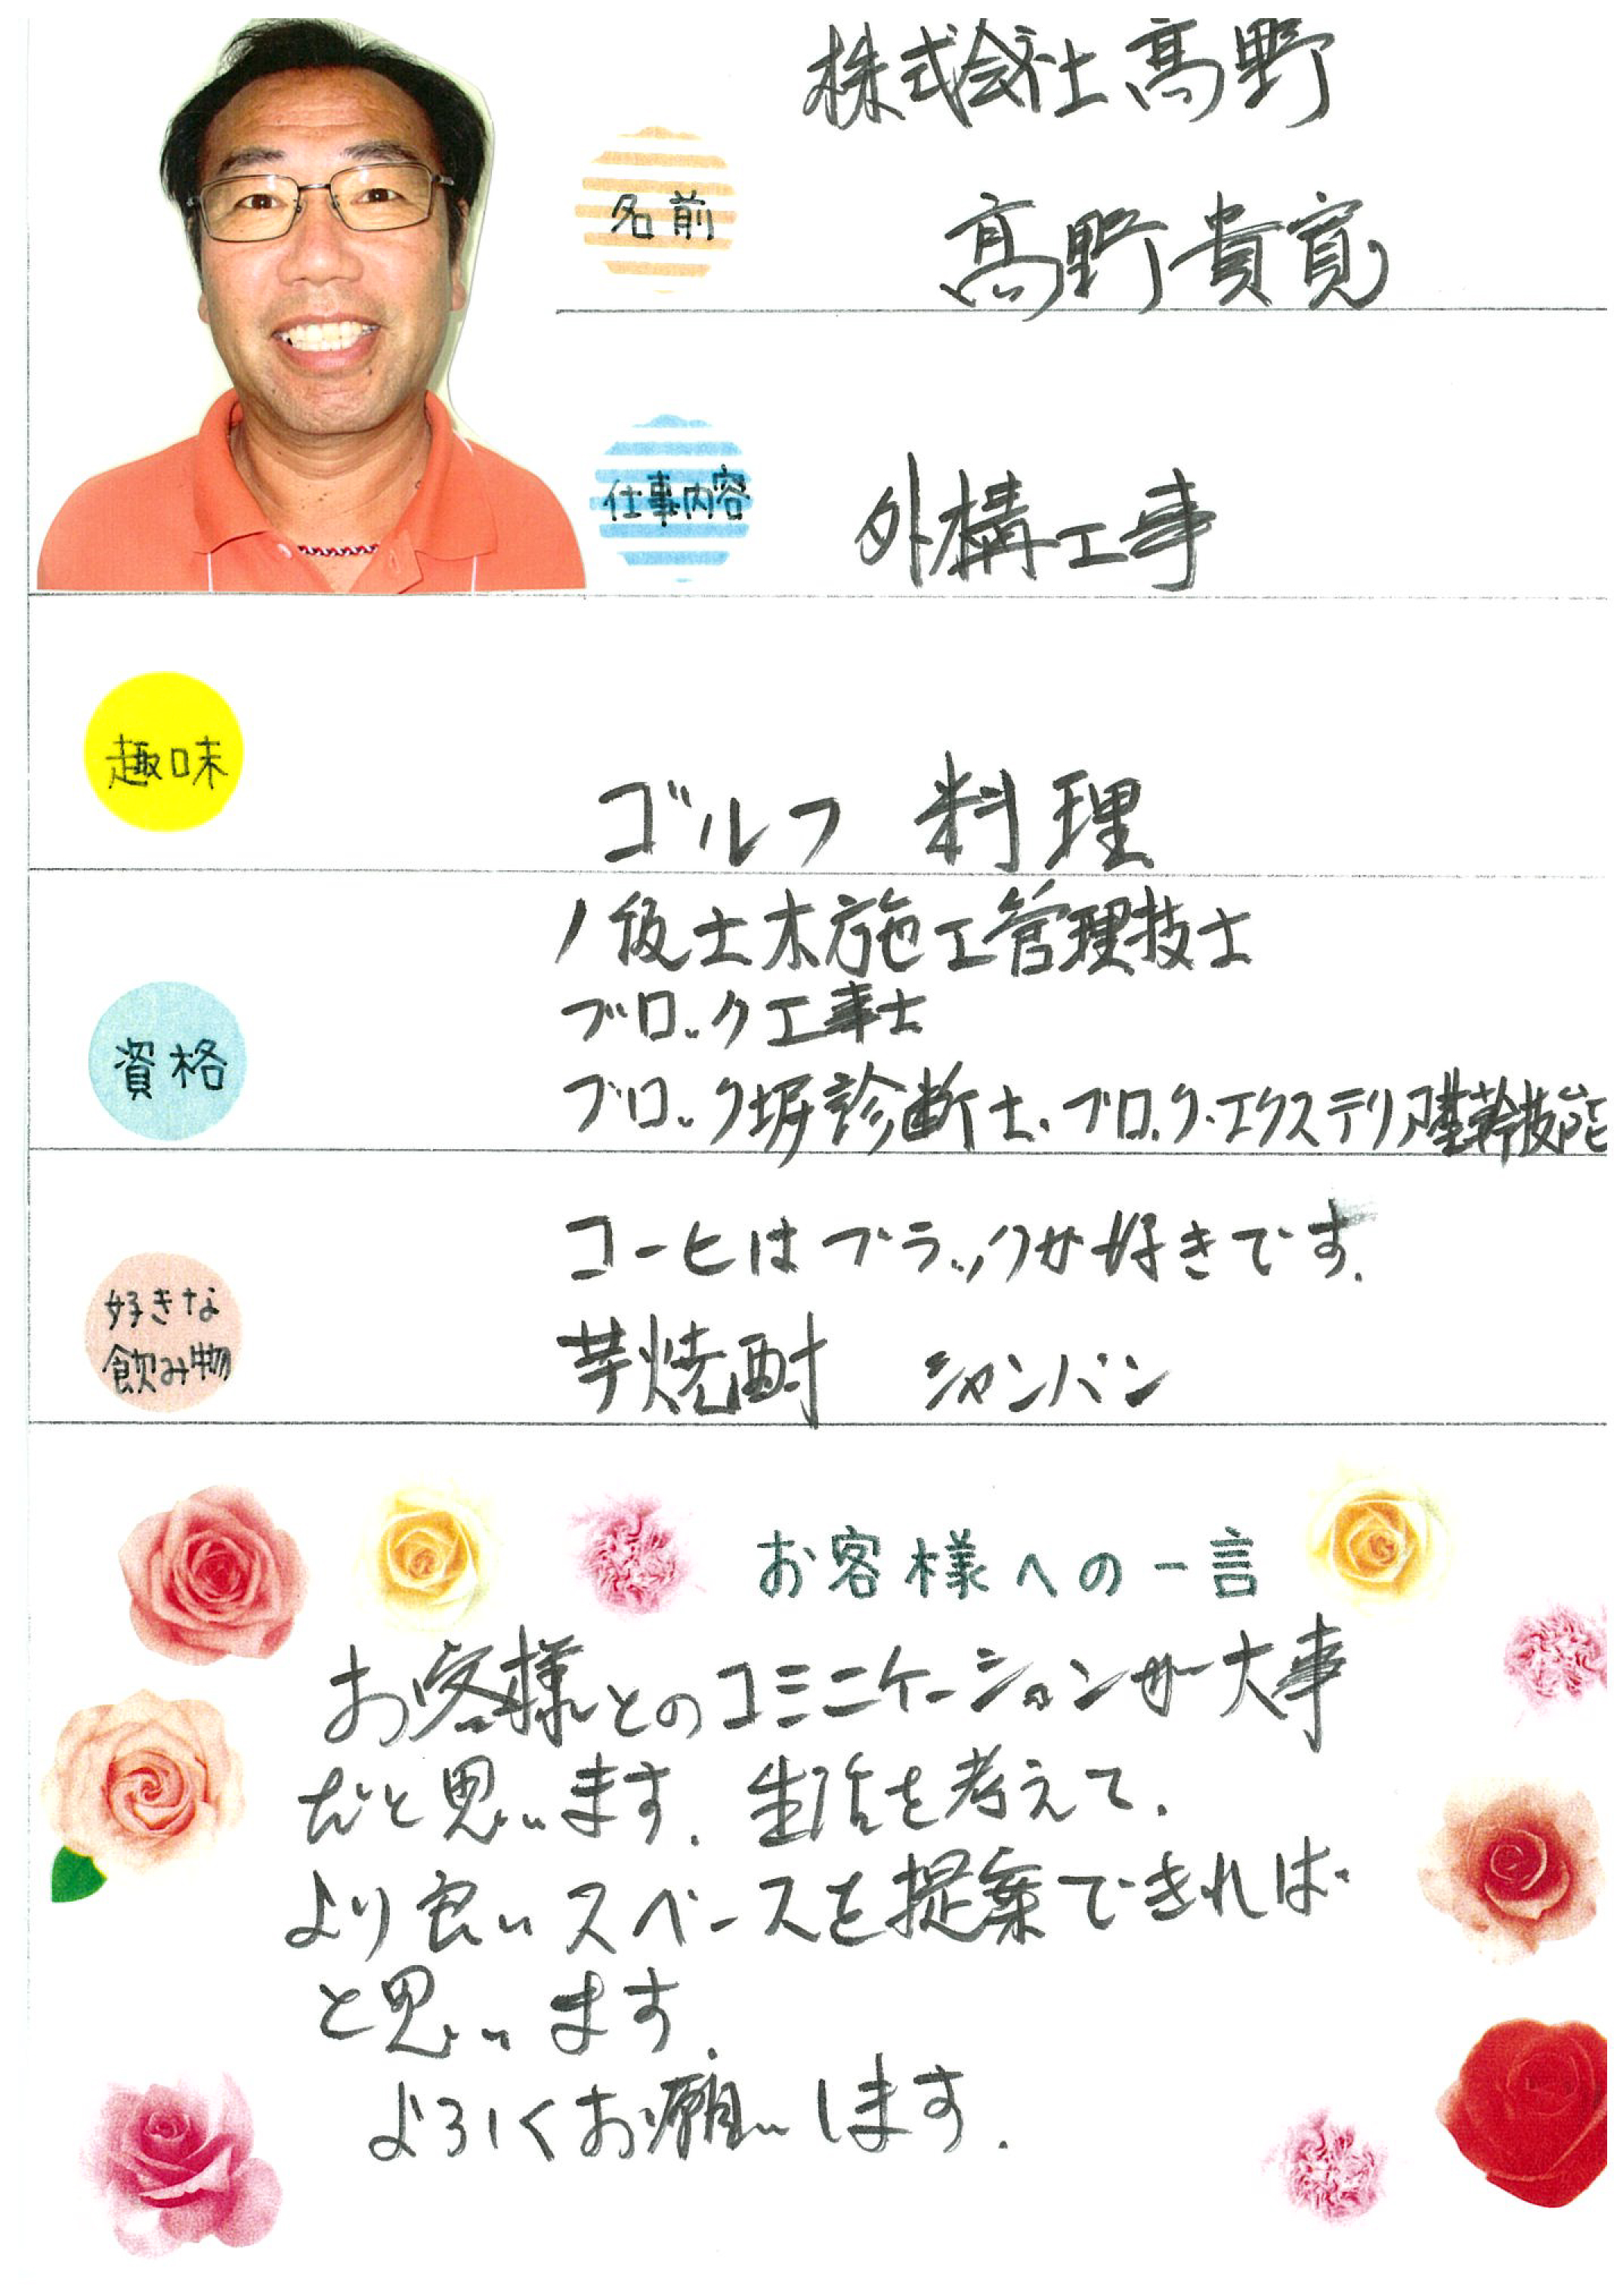 株式会社髙野
名前
髙野貴寛
仕事内容
外構工事
趣味
ゴルフ 料理
1級土木施工管理技士
ブロック工事士
資格
ブロック塀診断士、ブロック・エクステリア基幹技能
コーヒはブラックが好きです。
好きな
飲み物
芋焼酎 シャンパン
お客様への一言
お客様とのコミニケーションが大事
だと思います。生活を考えて、
より良いスペースを提案できれば
と思います。
よろしくお願いします。